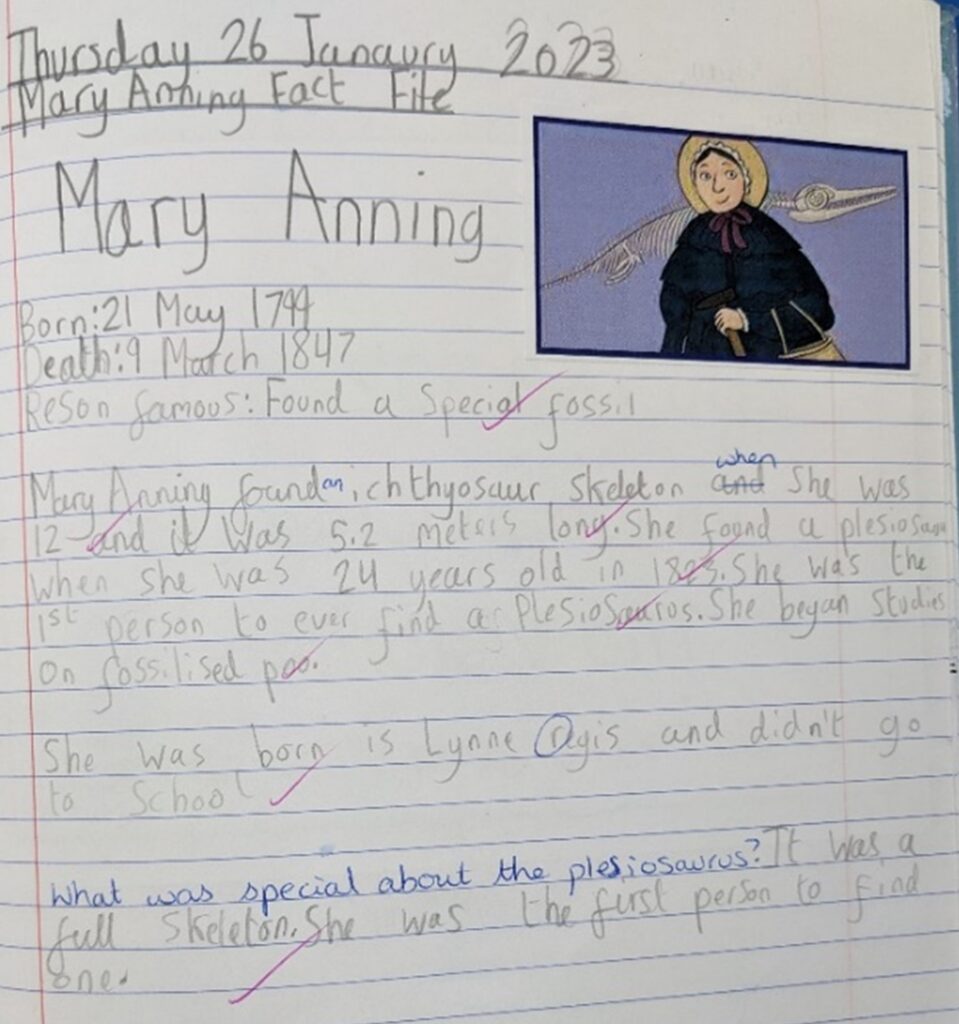 Thursday 26 Janaury 2023
Mary Anning Fact File
Mary Anning
Born:21 May 1799
Death:9 March 1847
Reson famous: Found a Special fossil
when
Mary Anning found an ichthyosaur skeleton and She was
12 and it Was 5.2 meters long. She found a plesiosaur
when she was 24 years old in 1823. She was the
1st person to ever find a Plesiosauros. She began Studies
on fossilised poo.
She was born is Lynne Regis and didn't go
to School
What was special about the plesiosaurus? It was a
full Skeleton. She was the first person to find
one.